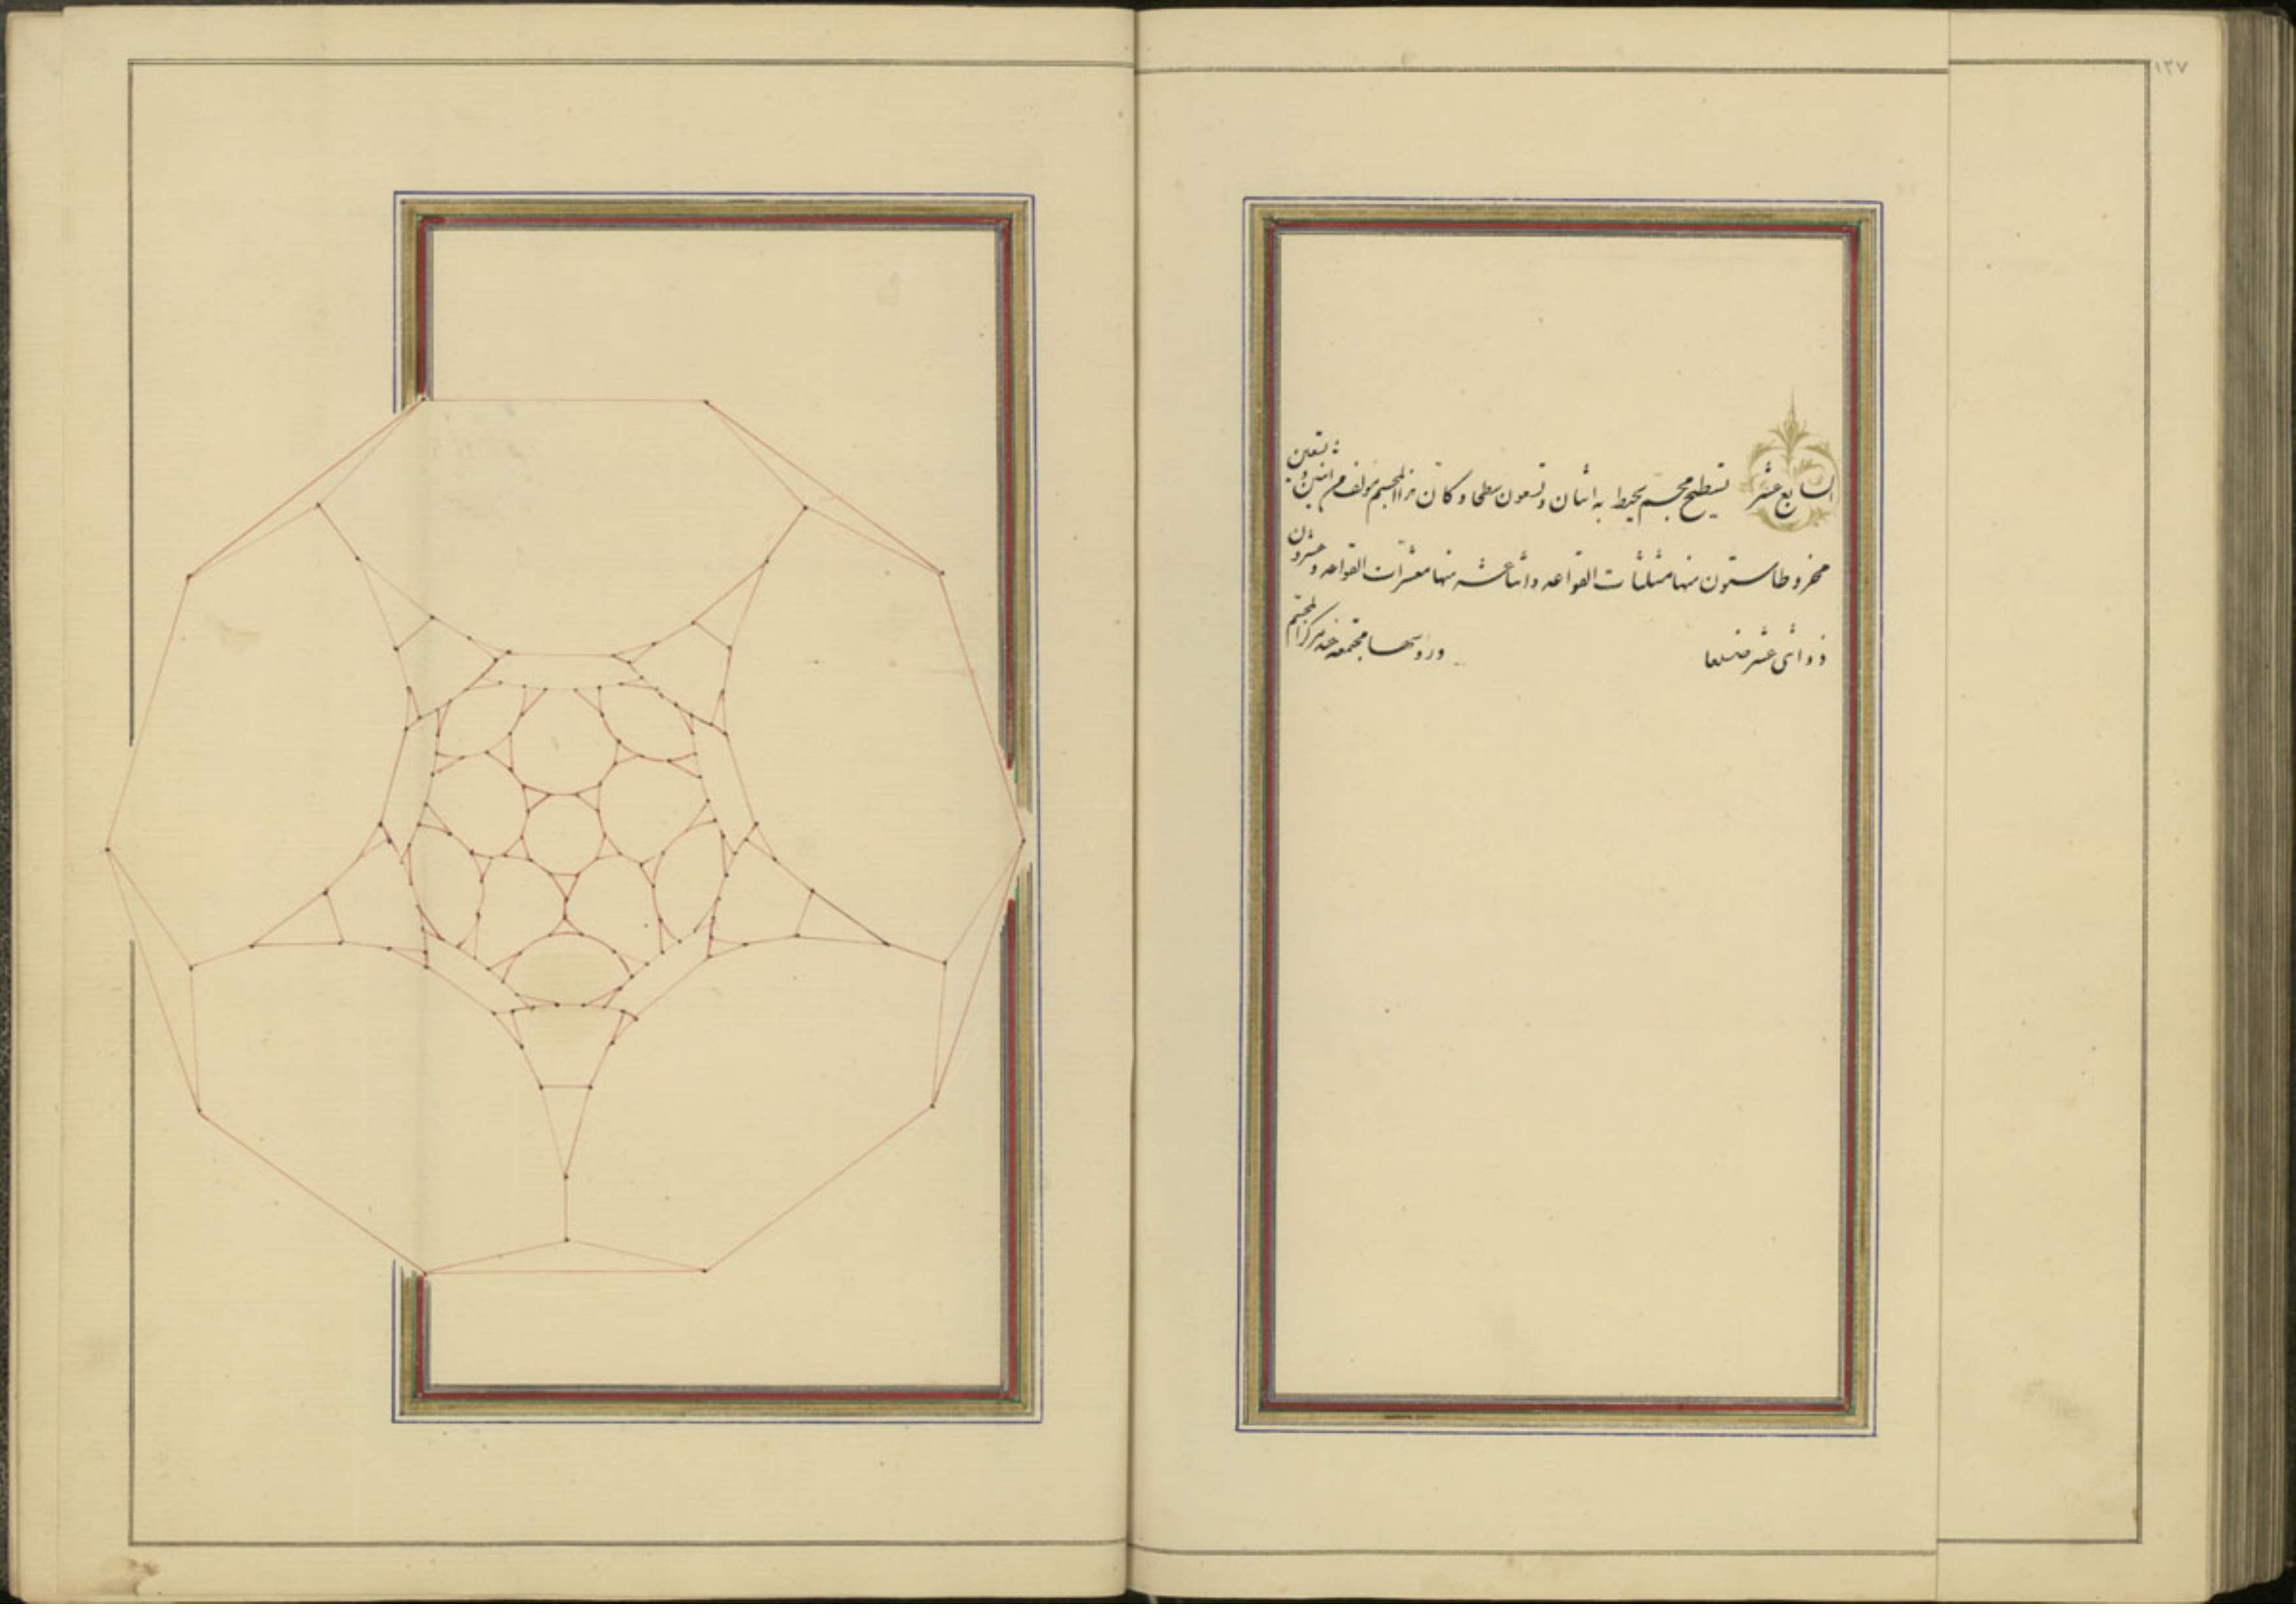 ١٢٧
السابع عشر تسطيح مجسم يحيط به اثنان وتسعون سطحا وكان هذا المجسم مؤلف من اثنين وتسعين
مخروطا ستون منها مثلثات القواعد واثنا عشر منها معشرات القواعد وعشرون
ذو اثنى عشر ضلعا ورؤسها مجتمعة عند مركز المجسم